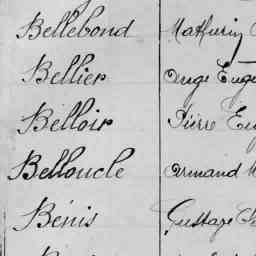 Bellebond Mathurin
Bellier Ange Eugè
Belloir Pierre Eu
Belloucle Armand
Bénis Gustave